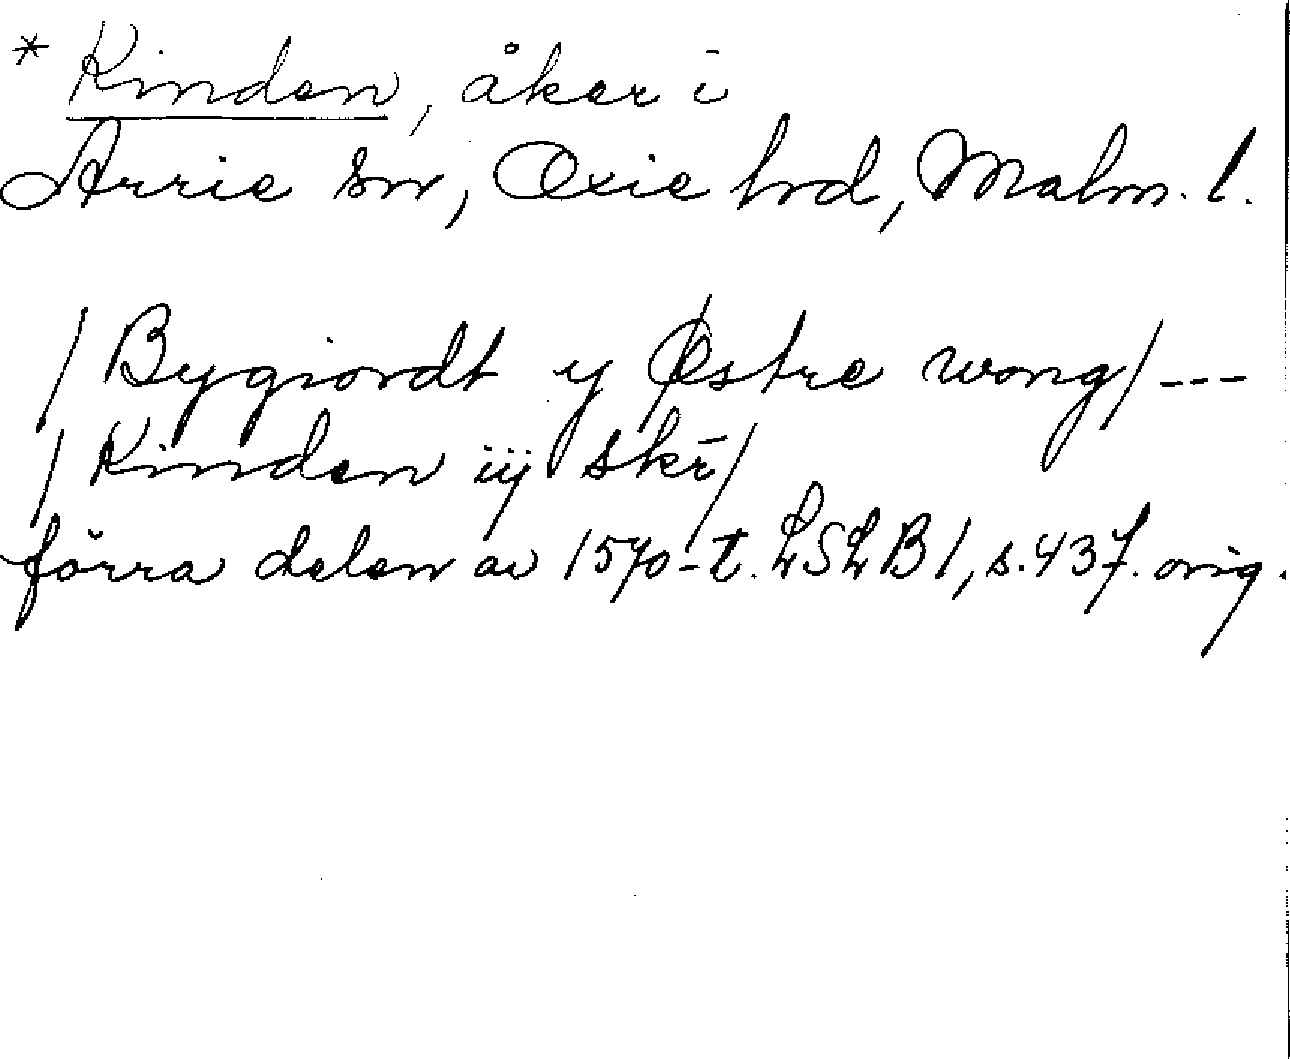 * Kinden, åker i
Arrie sn, Oxie hrd, Malm. l.
/Bygiordt y Østre wong/ ---
/Kinden iij skr̄/
förra delen av 1570-t. LSLB1, s. 437. orig.